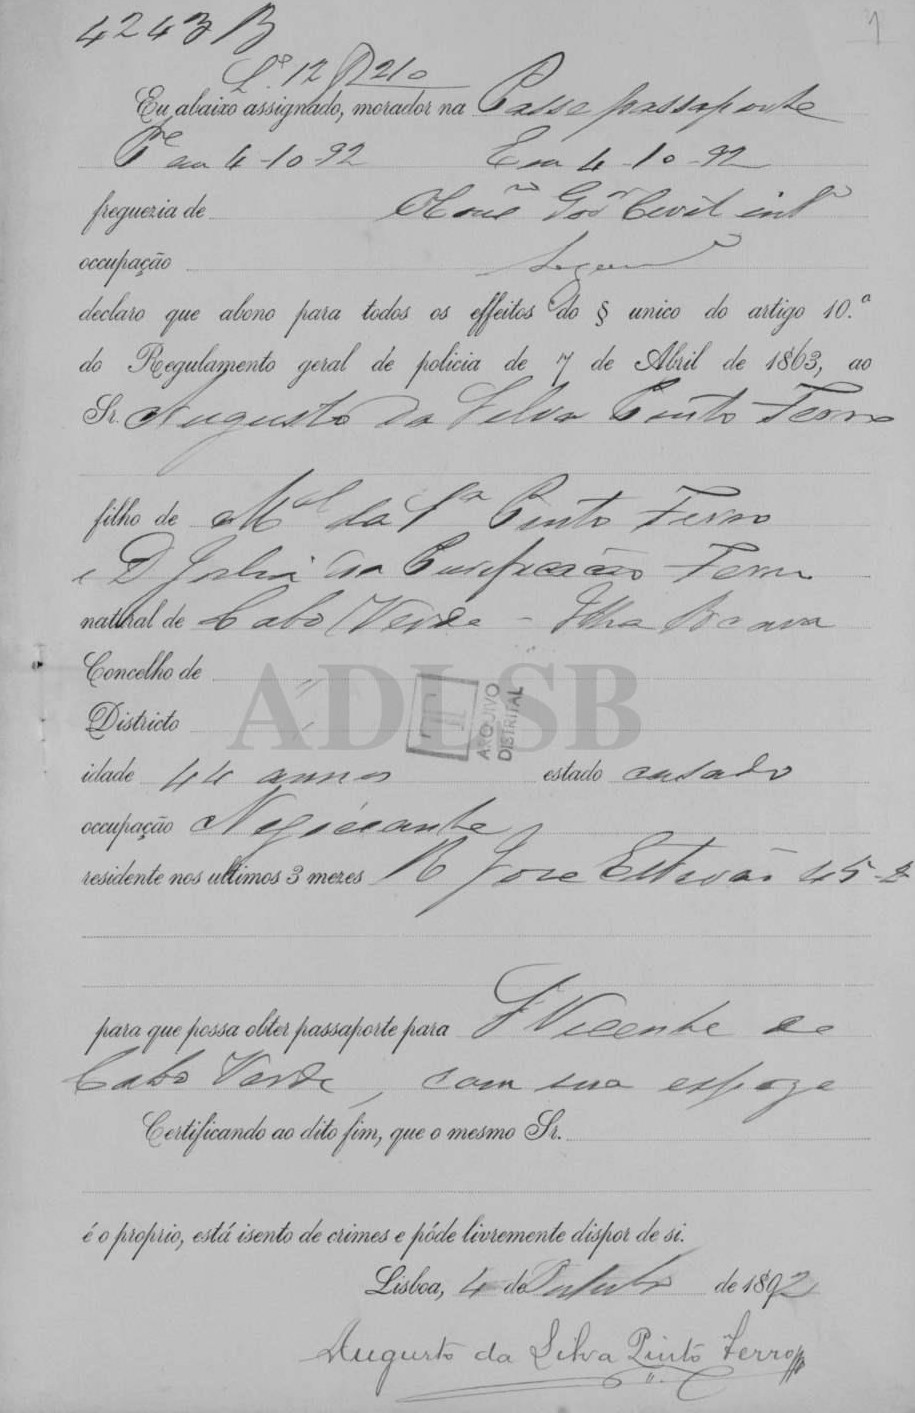 4243 B
1
Lº 12 P 210
Eu abaixo assignado, morador na Passe passaporte
Pe em 4-10-92 Em 4-10-92
freguezia de Govor Civil intº
occupação
declaro que abono para todos os effeitos do § unico do artigo 10.º
do Regulamento geral de policia de 7 de Abril de 1863, ao
Sr. Augusto da Silva Pinto Ferro
filho de Mel da Sª Pinto Ferro
e D Julia da Purificacão Ferro
natural de Cabo Verde - Ilha Brava
Concelho de "
Districto "
ADLSB
ARQUIVO
DISTRITAL
idade 44 annos estado casado
occupação Negociante
residente nos ultimos 3 mezes R Jose Estevão 45-2
para que possa obter passaporte para S Vicente de
Cabo Verde, com sua espoza
Certificando ao dito fim, que o mesmo Sr.
é o proprio, está isento de crimes e póde livremente dispor de si.
Lisboa, 4 de Outubro de 1892
Augusto da Silva Pinto Ferro